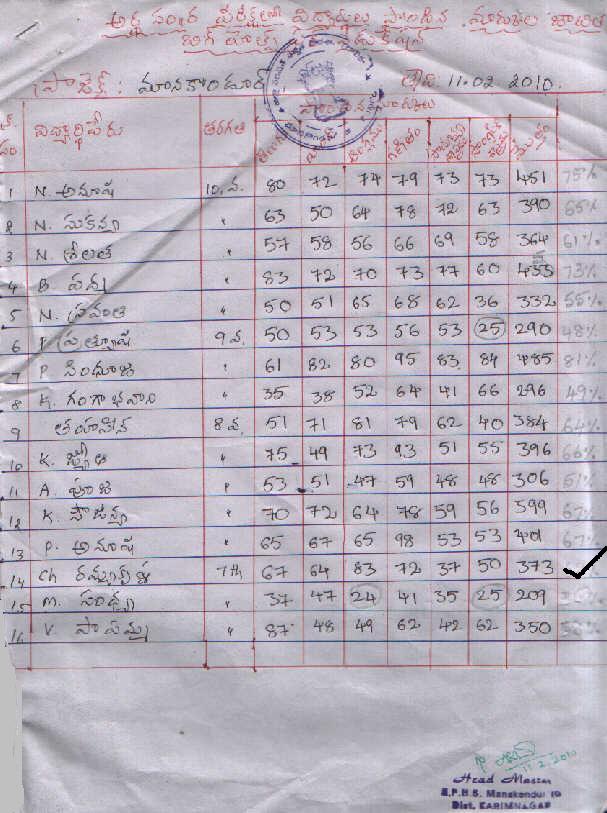 అర్ధ సంవత్సర పరీక్షలలో విద్యార్థులు పొందిన మార్కుల జాబితా
ప్రాజెక్ట్ : మానకొండూర్ తేది: 11.02 2010.
విద్యార్థిపేరు తరగతి తెలుగు హిందీ ఇంగ్లీషు గణితం మొత్తం
1 N. అనూష 10.వ. 80 72 74 79 73 73 451 75%
2 N. సుకన్య " 63 50 64 78 72 63 390 65%
3 N. శ్రీలత " 57 58 56 66 69 58 364 61%
4 B. " 83 72 70 73 77 60 435 73%
5 N. స్రవంతి " 50 51 65 68 62 36 332 55%
6 ప్రత్యూష 9వ. 50 53 53 56 53 25 290 48%
7 P. సింధూజ " 61 82 80 95 83 84 485 81%
8 K. గంగాభవాని " 35 38 52 64 41 66 296 49%
9 తహసీన 8వ. 51 71 81 79 62 40 384 64%
10 K. " 75 49 73 93 51 55 396 66%
11 A. పూజ " 53 51 47 59 48 48 306 51%
12 K. సౌజన్య " 70 72 64 78 59 56 399 67%
13 P. అనూష " 65 67 65 98 53 53 401 67%
14 Ch రమ్యశ్రీ 7th 67 64 83 72 37 50 373
15 M. సంధ్య " 37 47 24 41 35 25 209
16 V. సౌమ్య " 87 48 49 62 42 62 350
11.2.2010
Head Master
Z.P.H.S. Manakondur
Dist. KARIMNAGAR